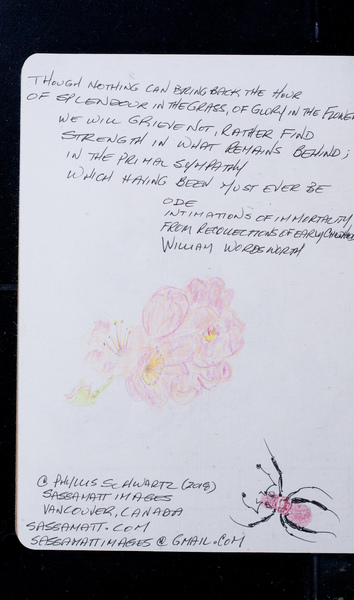 THOUGH NOTHING CAN BRING BACK THE HOUR
OF SPLENDOUR IN THE GRASS, OF GLORY IN THE FLOWER
WE WILL GRIEVE NOT, RATHER FIND
STRENGTH IN WHAT REMAINS BEHIND;
IN THE PRIMAL SYMPATHY
WHICH HAVING BEEN MUST EVER BE
ODE
INTIMATIONS OF IMMORTALITY
FROM RECOLLECTIONS OF EARLY CHILDHOOD
WILLIAM WORDSWORTH
@ PHYLLIS SCHWARTZ (2018)
SASSAMATT IMAGES
VANCOUVER, CANADA
SASSAMATT.COM
SASSAMATTIMAGES@GMAIL.COM